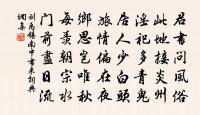 君書問風俗
此地接炎州
淫祀多青鬼
居人少白頭
旅情偏在夜
鄉思豈唯秋
每羨朝宗水
門前盡日流
劉禹錫南中書來詞典
網集